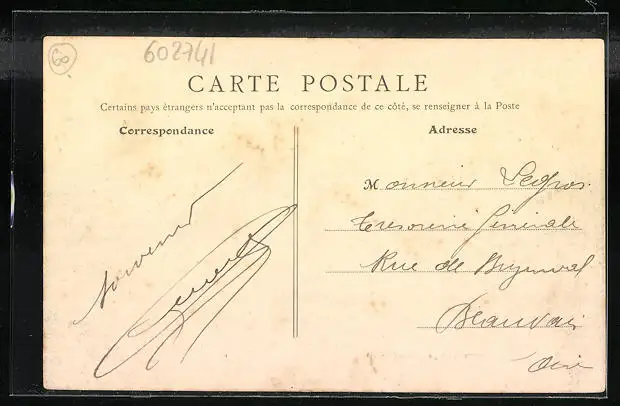 60
602741
CARTE POSTALE
Certains pays étrangers n'acceptant pas la correspondance de ce côté, se renseigner à la Poste
Correspondance
Adresse
Monsieur Legros
Trésorerie Générale
Rue de
Beauvais
Oise
Souvenir